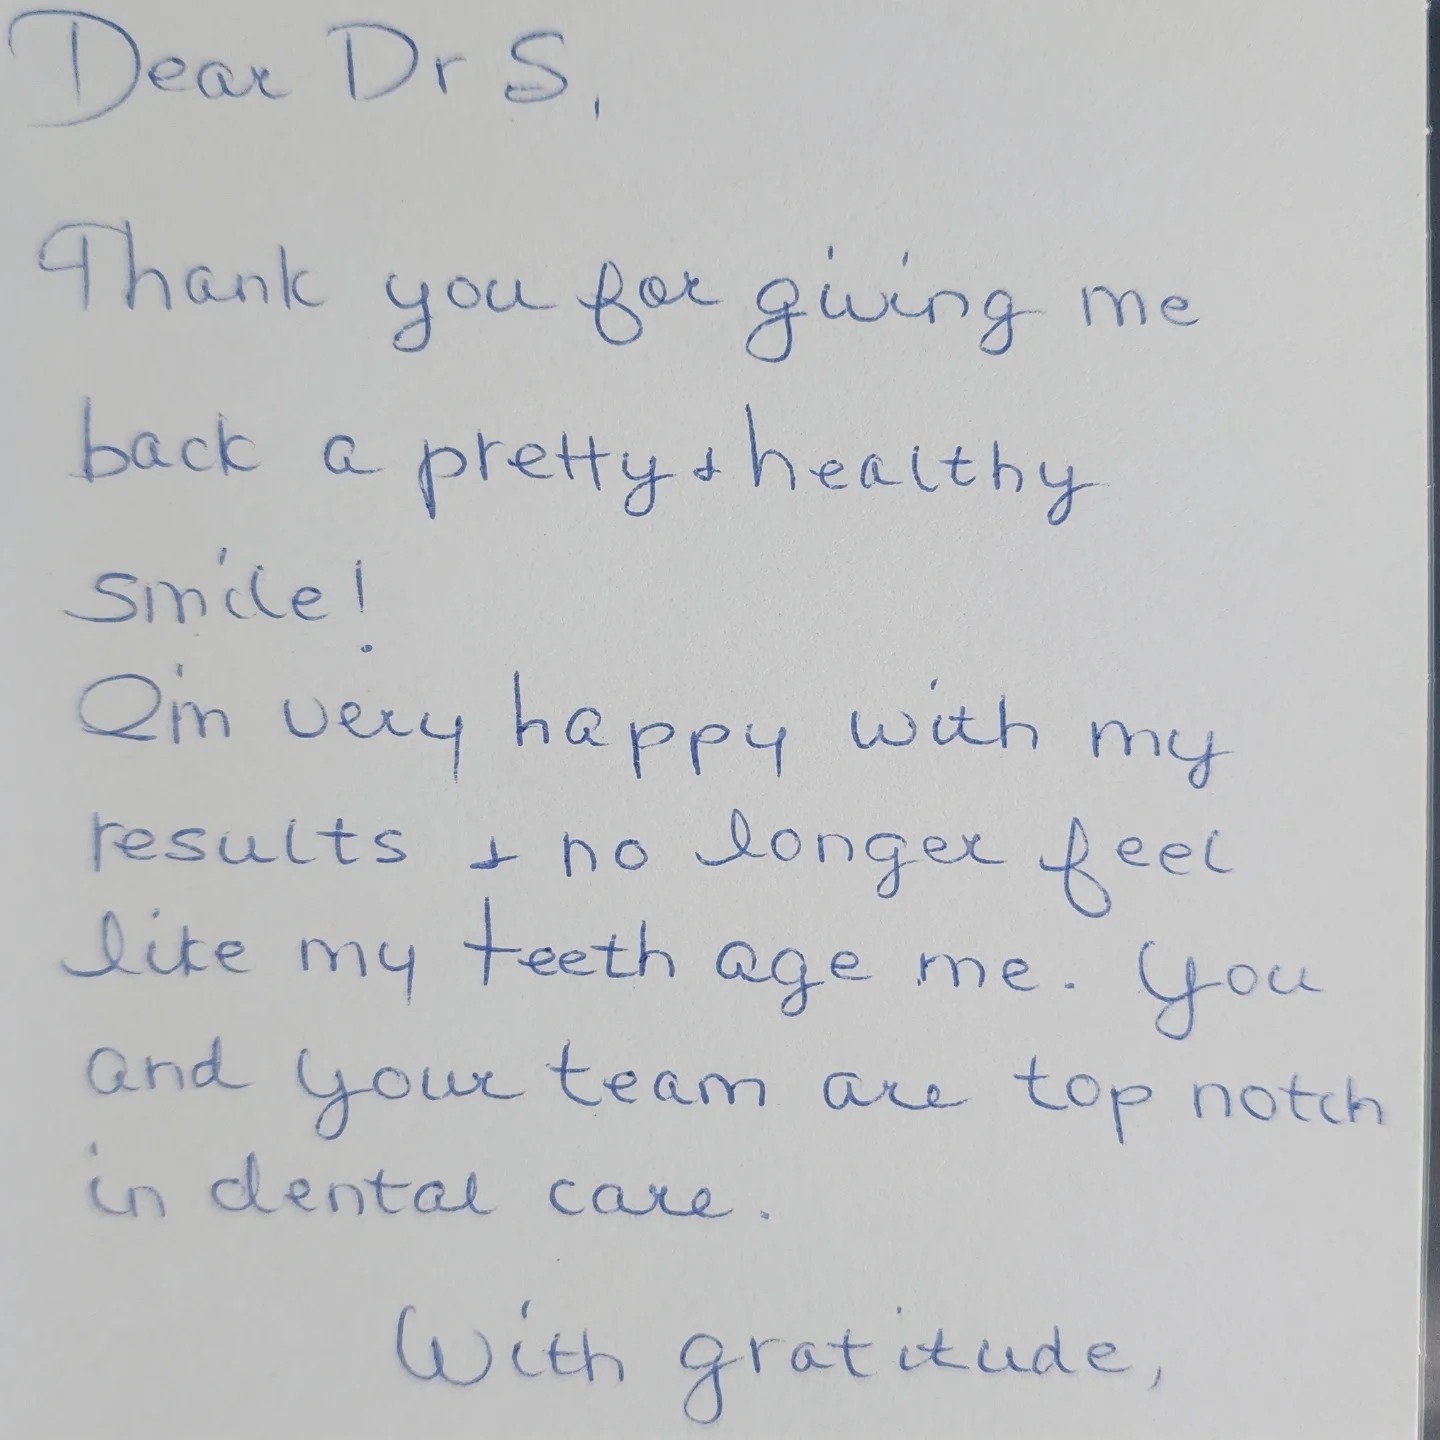 Dear Dr S,
Thank you for giving me
back a pretty & healthy
smile!
I'm very happy with my
results & no longer feel
like my teeth age me. You
and your team are top notch
in dental care.
With gratitude,